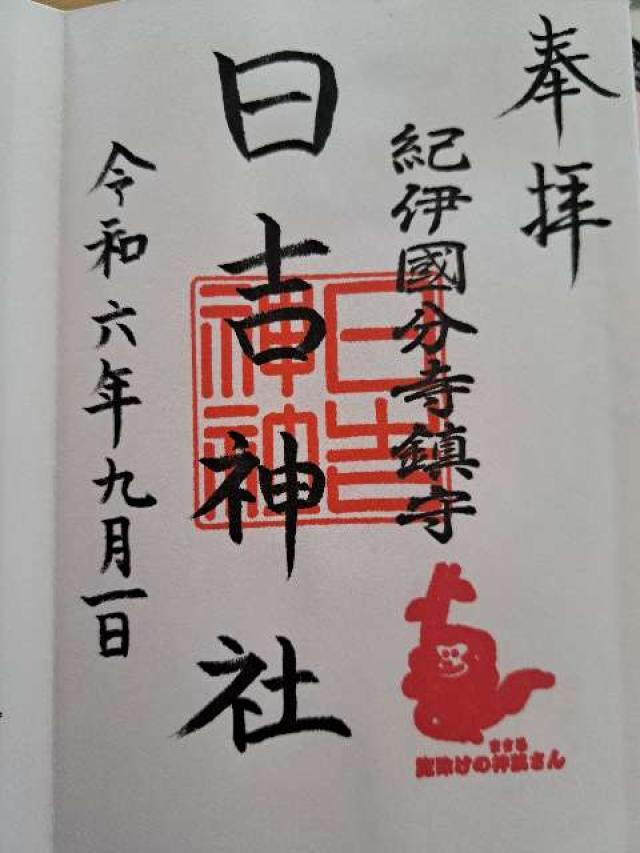 奉拝
紀伊國分寺鎮守
日吉神社
日吉神社
令和六年九月一日
まさる
魔除けの神猿さん